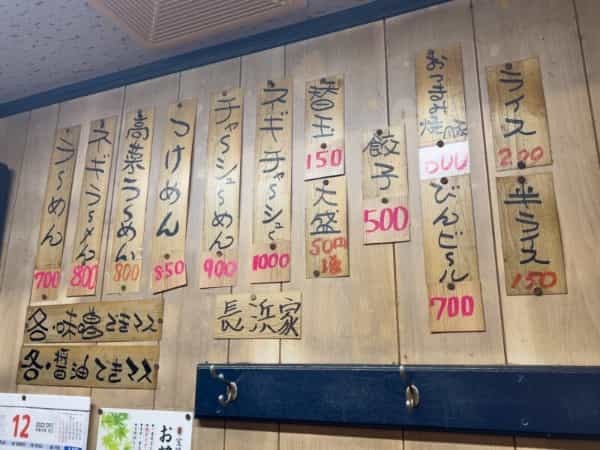 らーめん
700
ネギらーめん
800
高菜らーめん
800
つけめん
850
チャーシューめん
900
ネギチャーシュー
1000
替玉
150
大盛
50円
増
餃子
500
おつまみ焼豚
600
びんビール
700
ライス
200
半ライス
150
各・味噌できマス
各・醤油できマス
長浜家
12